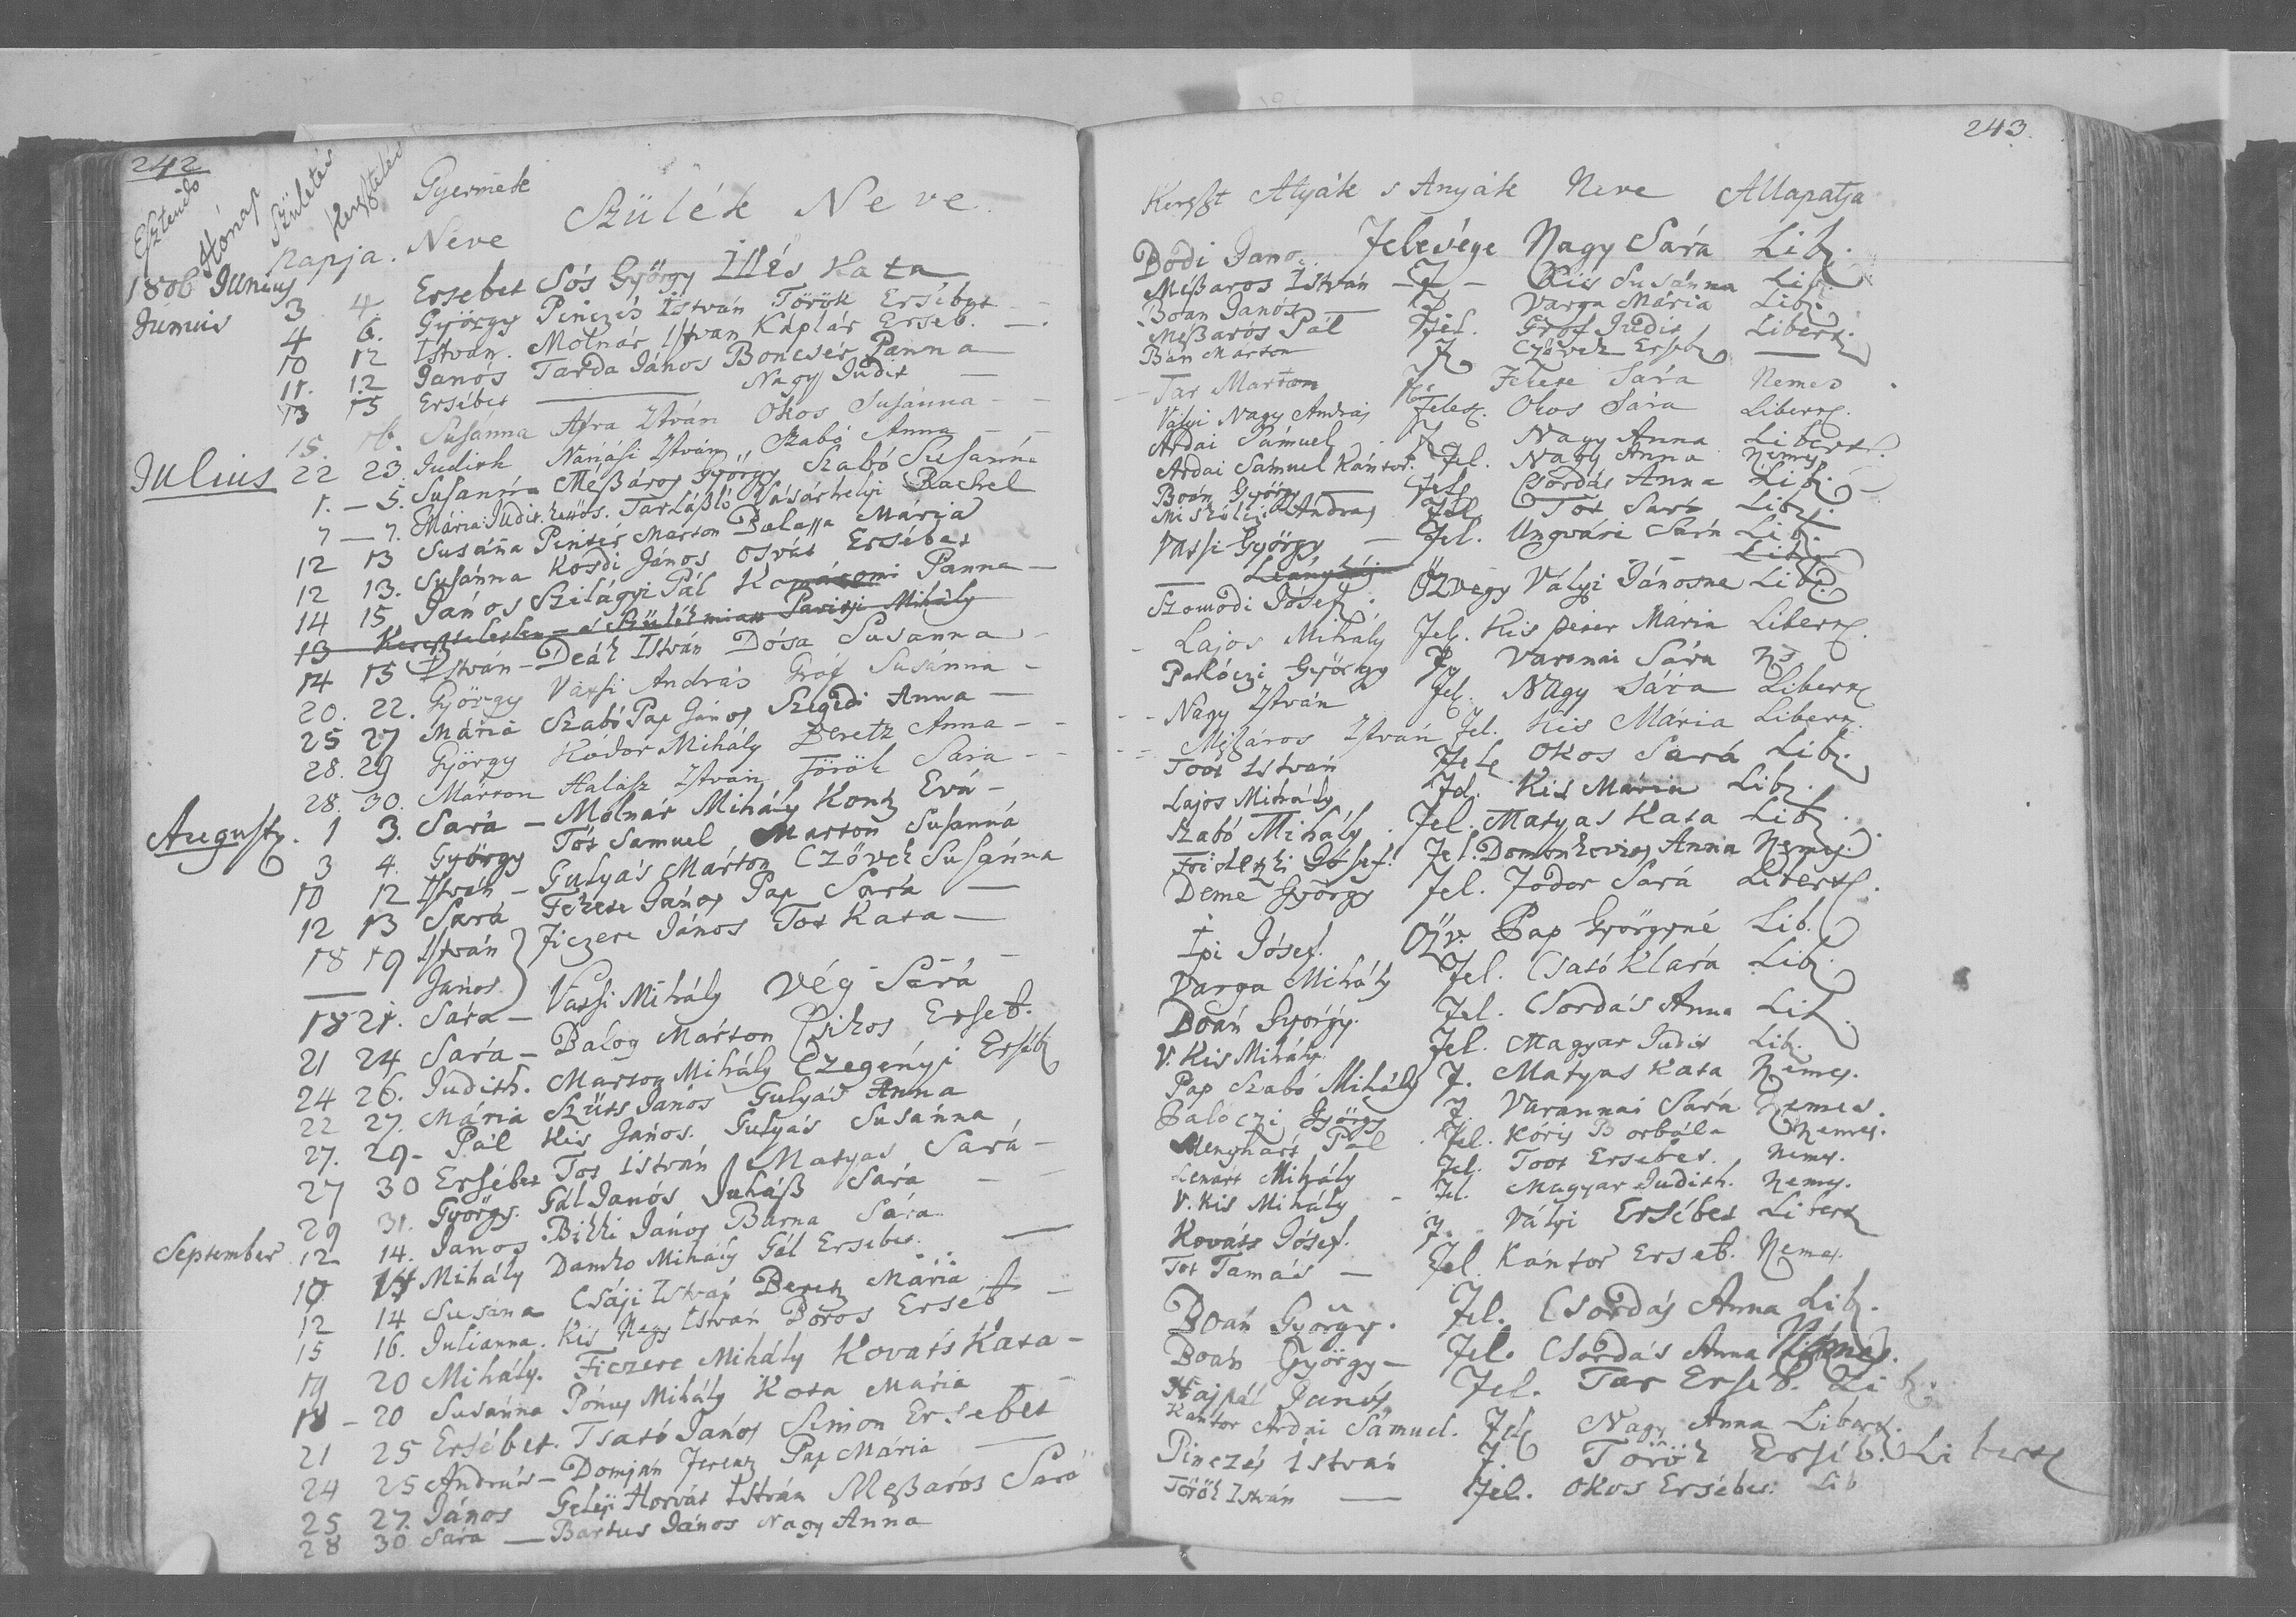 242
Esztendő Hónap Születés Kereszteles
Gyermek
Szülék Neve
Napja. Neve
1806 Junius
Ersebet Sós György Illés Kata
Junius 3 4 György Pinczés István Török Ersébet
4 6. István. Molnár István Káplár Erseb.
10 12 János Tarda János Boncsér Panna
11. 12 Ersébet Nagy Judit
13 15 Susánna Afra István Okos Susánna
15. 16. Judith Nánási István Szabó Anna
Julius 22 23. Susánna Mészáros György Szabó Susánna
1. - 5. Mária Judit Tar László Vásárhelyi Rachel
7 - 7. Susánna Pintér Marton Balassa Mária
12 13 Susánna Kordi János Osvát Ersébet
12 13. János Szilágyi Pál Komáromi Panna
14 15
13 Szülék miatt Mihály
14 15 István - Deák István Dósa Susanna
20. 22. György Vassi András Gróf Susánna
25 27 Mária Szabó Pap János Szegedi Anna
28. 29 György Kádor Mihály Beretz Anna
28. 30. Márton Halász István Török Sára
Augusty. 1 3. Sara - Molnár Mihály Kontz Evá
3 4. György Tót Samuel Marton Susanná
10 12 István - Gulyás Márton Czövek Susánna
12 13 Sará Fekete János Pap Sará
18 19 István } Ficzere János Tot Kata
János
18 21. Sára - Vassi Mihály Vég Sará
21 24 Sará - Balog Marton Csikos Erseb.
24 26. Judith. Marton Mihály Czegényi Erséb
22 27. Mária Szüts János Gulyás Anna
27. 29 - Pál Kis János. Gulyás Susánna
27 30 Ersébet Tot István Matyas Sará
29 31. György Gál János Juhász Sára
September 12 14. Janos Bikki János Barna Sára
10. 14 Mihály Damko Mihály Gál Ersebet.
12 14 Susána Csáji István Beretz Mária
15 16. Julianna. Kis Nagy István Boros Erséb
19 20 Mihály. Ficzere Mihály Kovats Kata
18 - 20 Susánna Pónus Mihály Kota Mária
21 25 Ersébet. Tsató János Simon Ersebet
24 25 András - Domján Ferentz Pap Mária
25 27. János Geleji Horvát István Meszarós Sará
28 30 Sára - Bartus János Nagy Anna
243.
Kereszt Atyák s Anyák Neve Allapatja
Bodi Jano. Felesége Nagy Sára Lib.
Mészaros István - F - Kis Susánna Lib.
Boan Janós F Varga Mária Lib.
Mészarós Pál Fel. Gróf Judit Libert.
Bán Márton F Czövek Erseb
Tar Marton Fe Fekete Sára Nemes
Vályi Nagy András Feles. Okos Sára Libert.
Ardai Sámuel F Nagy Anna Libert.
Ardai Sámuel Kántor. Fel. Nagy Anna Nemes
Boán György Fel. Csordás Anna Lib.
Miskólczi András Fel. Tót Sará Lib.
Vassi György - Fel. Ungvári Sára Lib.
Szomodi Jósef. Özvegy Vályi Jánosne Lib.
Lajos Mihály Fel. Kis péter Mária Libert.
Palóczi György F Varanai Sára
Nagy István Fel. Nagy Sára Libert
Mészáros István Fel. Kis Mária Libert.
Toót István Fele Okos Sará Lib.
Lajos Mihály Fel. Kis Mária Lib.
Szabó Mihály. Fel. Matyas Kata Lib.
Fridetzki Jósef. Fel. Domonkovics Anna Nemes.
Deme György Fel. Fodor Sará Libert.
Ipi Jósef. Özv. Pap Györgyné Lib.
Varga Mihály Fel. Csató Klára Lib.
Boán György. Fel. Csordás Anna Lib.
V. Kis Mihály. Fel. Magyar Judit Lib.
Pap Szabó Mihály F. Matyas Kata Nemes.
Palóczi György F. Varannai Sára Nemes.
Menyhárt Pál. Fel. Kóris Borbála Nemes.
Lenárt Mihály Fel. Toot Ersebet. Nemes.
V. Kis Mihály - Fel. Magyar Judith. Nemes.
Kováts Jósef. F. Vályi Ersébet Libert
Tot Tamás - Fel. Kántor Erseb. Nemes.
Boán György. Fel. Csordás Anna Lib.
Boán György - Fel. Csordás Anna Nemes.
Hajpál Janós Fel. Tar Erseb. Lib.
Kántor Ardai Sámuel. Fel Nagy Anna Libert.
Pinczés István F. Török Erséb. Libert
Török István - Fel. Okos Ersébet. Lib